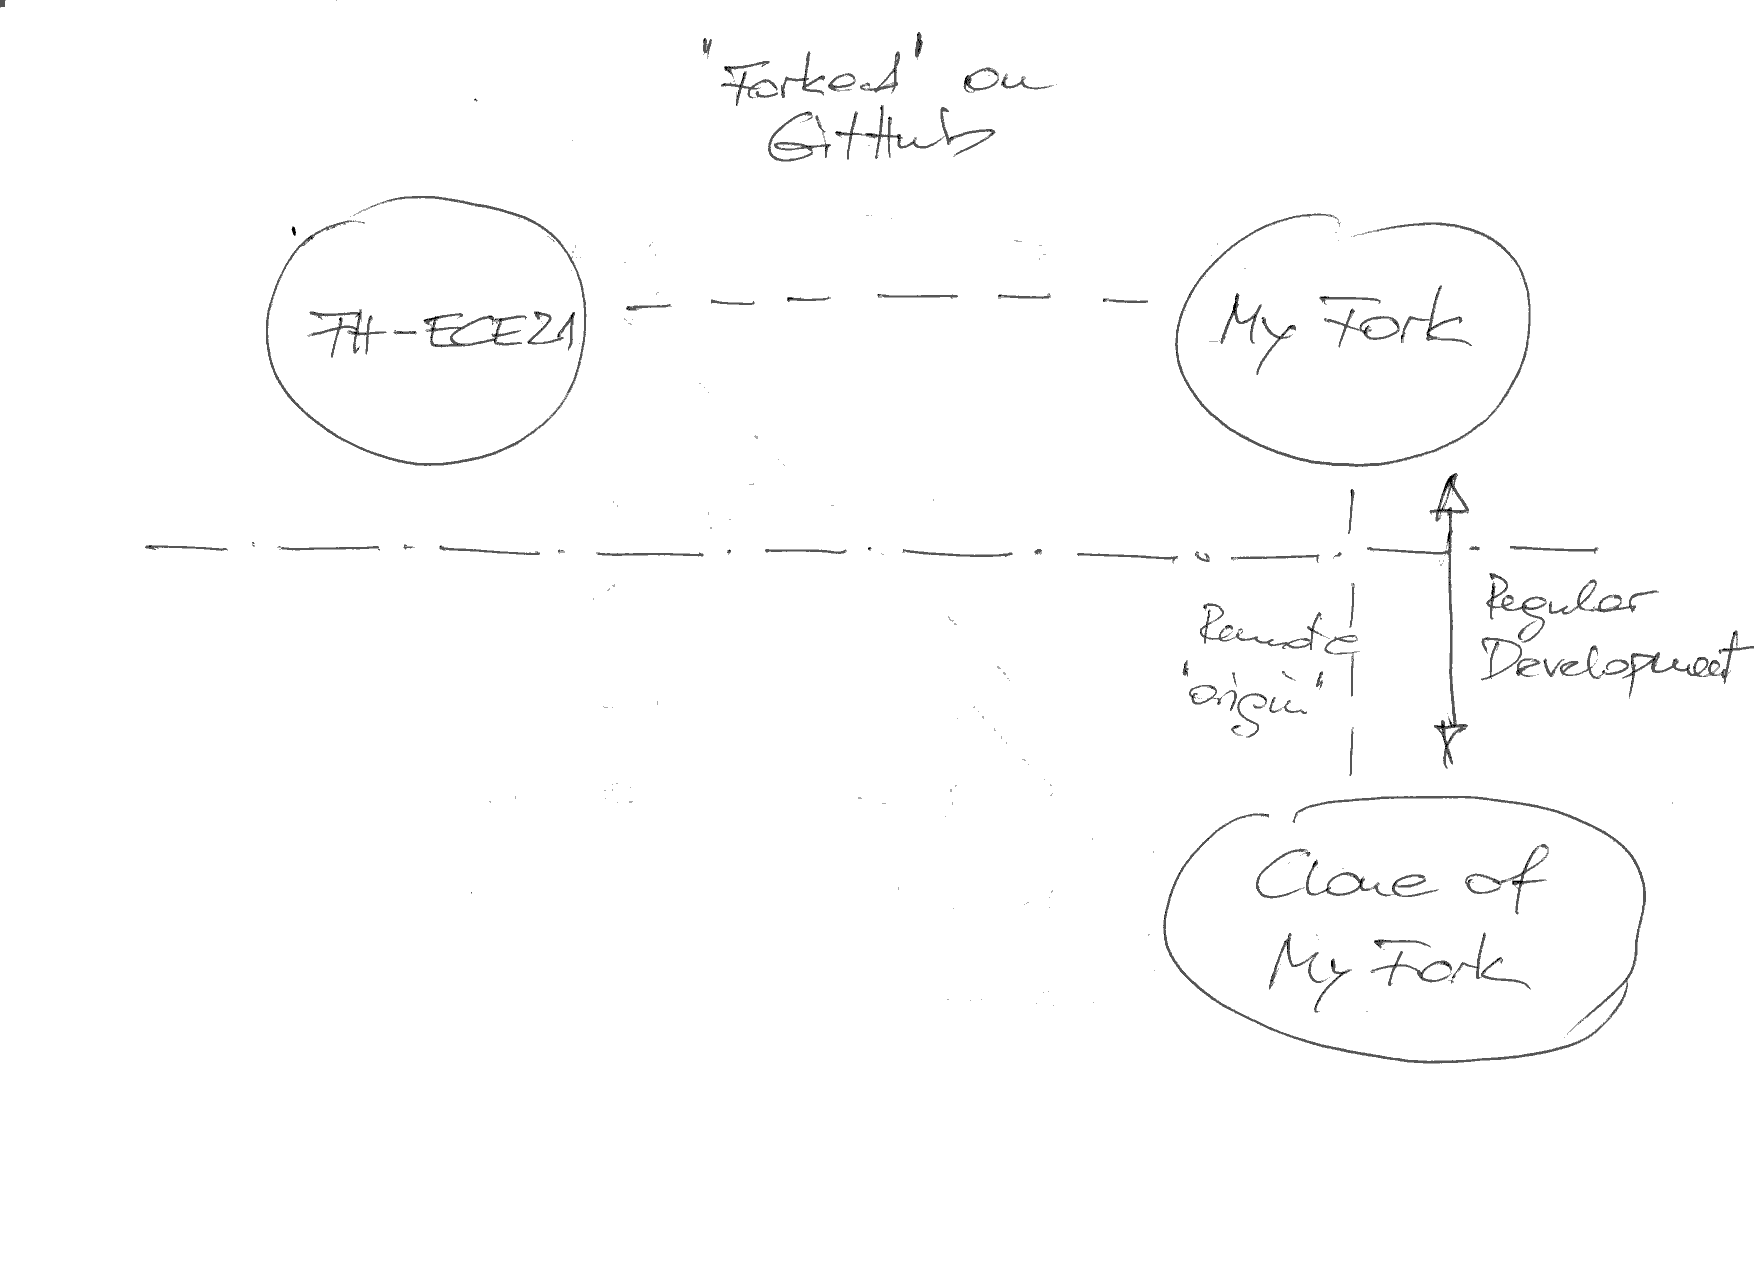 "Forked" on
GitHub
FH-ECE21
My Fork
Remote
"origin"
Regular
Development
Clone of
My Fork